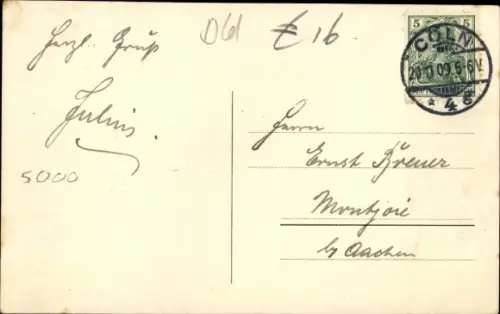 Herzl. Gruß
Julius.
5000
D61
€ 16
5 5
CÖLN
09. 5-6 V.
* 4 e
Herrn
Ernst Breuer
Montjoie
b/ Aachen